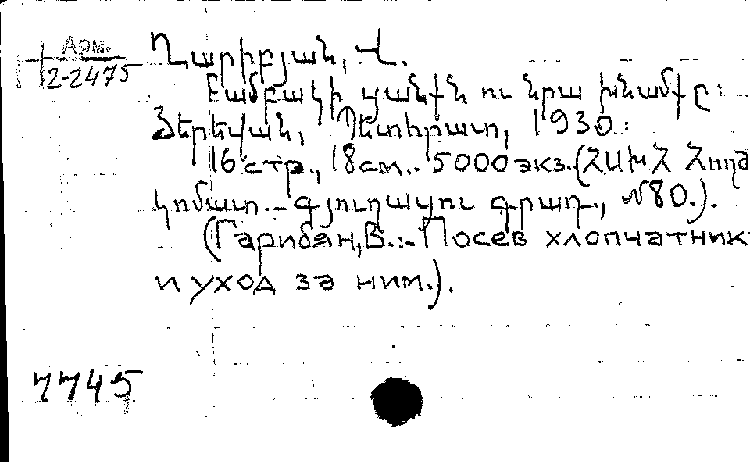 Арм.
2-2475
Ղարիբյան, Վ.
Բամբակի ցանքն ու նրա խնամքը:
Յերեվան, Պետհրատ, 1930:
16 стр., 18 см.. 5000 экз. (ՀԱԽՀ Հողժ
կոմատ.- գյուղակու գրադ., №80.).
(Гарибян, В.:- Посев хлопчатник
и уход за ним.).
7745